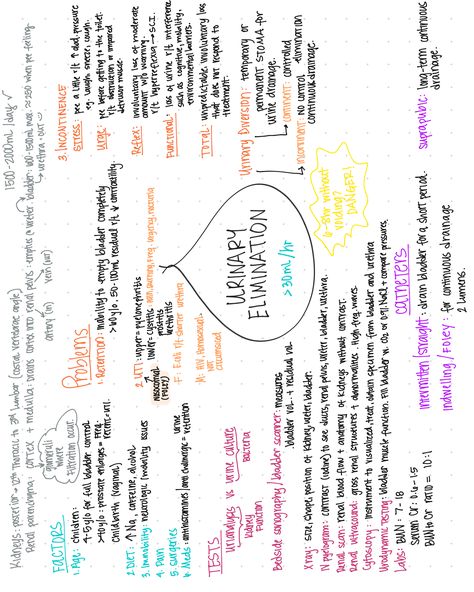 Kidneys: posterior → 12th thoracic to 3rd lumbar (costal vertebrae angle)
1500-2000mL/day
Renal parenchyma: cortex + medulla: drains into renal pelvis → empties → ureter → bladder: max ≈ 250 when pee feeling
↳ urethra → out
artery (in)
vein (out)
glomeruli
where
filtration occur
FACTORS
1. Age: children:
4-5y/o for full bladder control
>40y/o: prostate enlarges =
Childbirth (vaginal)
2. DIET: ↑ Na, caffeine, alcohol
3. Immobility: neurologic/mobility issues
4. Pain
5. Surgeries
6. Meds: antihistamines/ = urine retention
Problems
1. Retention: inability to empty bladder completely
50-100mL residual r/t ↓ contractility
2. UTI: upper = pyelonephritis
lower = cystitis
urethritis
nosocomial
pain, burning, freq, urgency, nocturia
F: E.coli r/t shorter urethra
M: HIV, Homosexual
not circumcised
3. INCONTINENCE
STRESS: pee a little r/t ↑ abd. pressure
eg. laugh, sneeze, cough.
Urge: pee before getting to the toilet.
r/t obstruction or impaired
detrusor muscle.
Reflex: involuntary loss of moderate
amount w/o warning.
r/t hyperreflexia → SCI.
Functional: loss of urine r/t interference
such as cognitive, mobility,
environmental barriers.
TOTAL: unpredictable involuntary loss
that does not respond to
treatment.
URINARY
ELIMINATION
>30mL/hr
6-8hr without
voiding?
DANGER!
Urinary Diversion: temporary or
permanent STOMA for
urine drainage.
continent: controlled
incontinent: no control elimination
continuous drainage.
TESTS
Urinalysis vs urine culture
kidney
Function
bacteria
Bedside sonography/bladder scanner: measures
bladder vol. + residual vol.
Xray: size, shape, position of kidney, ureter, bladder.
IV pyelogram: contrast (kidney) to see ducts, renal pelvis, ureter, bladder, urethra.
Renal scan: renal blood flow + anatomy of kidneys without contrast.
Renal ultrasound: gross renal structures + abnormalities. High freq. waves
Cytoscopy: instrument to visualized, treat, obtain specimen from bladder and urethra
Urodynamic Testing: bladder muscle function. Fill bladder w. CO2 or 0.9% NaCl + compare pressures.
Labs: BUN: 7-18
Serum Cr: 0.6-1.5
BUN to Cr ratio = 10:1
Catheters
Intermitten/straight: drain bladder for a short period.
Indwelling/Foley: for continuous drainage
2 lumens.
suprapubic: long-term continuous
drainage.